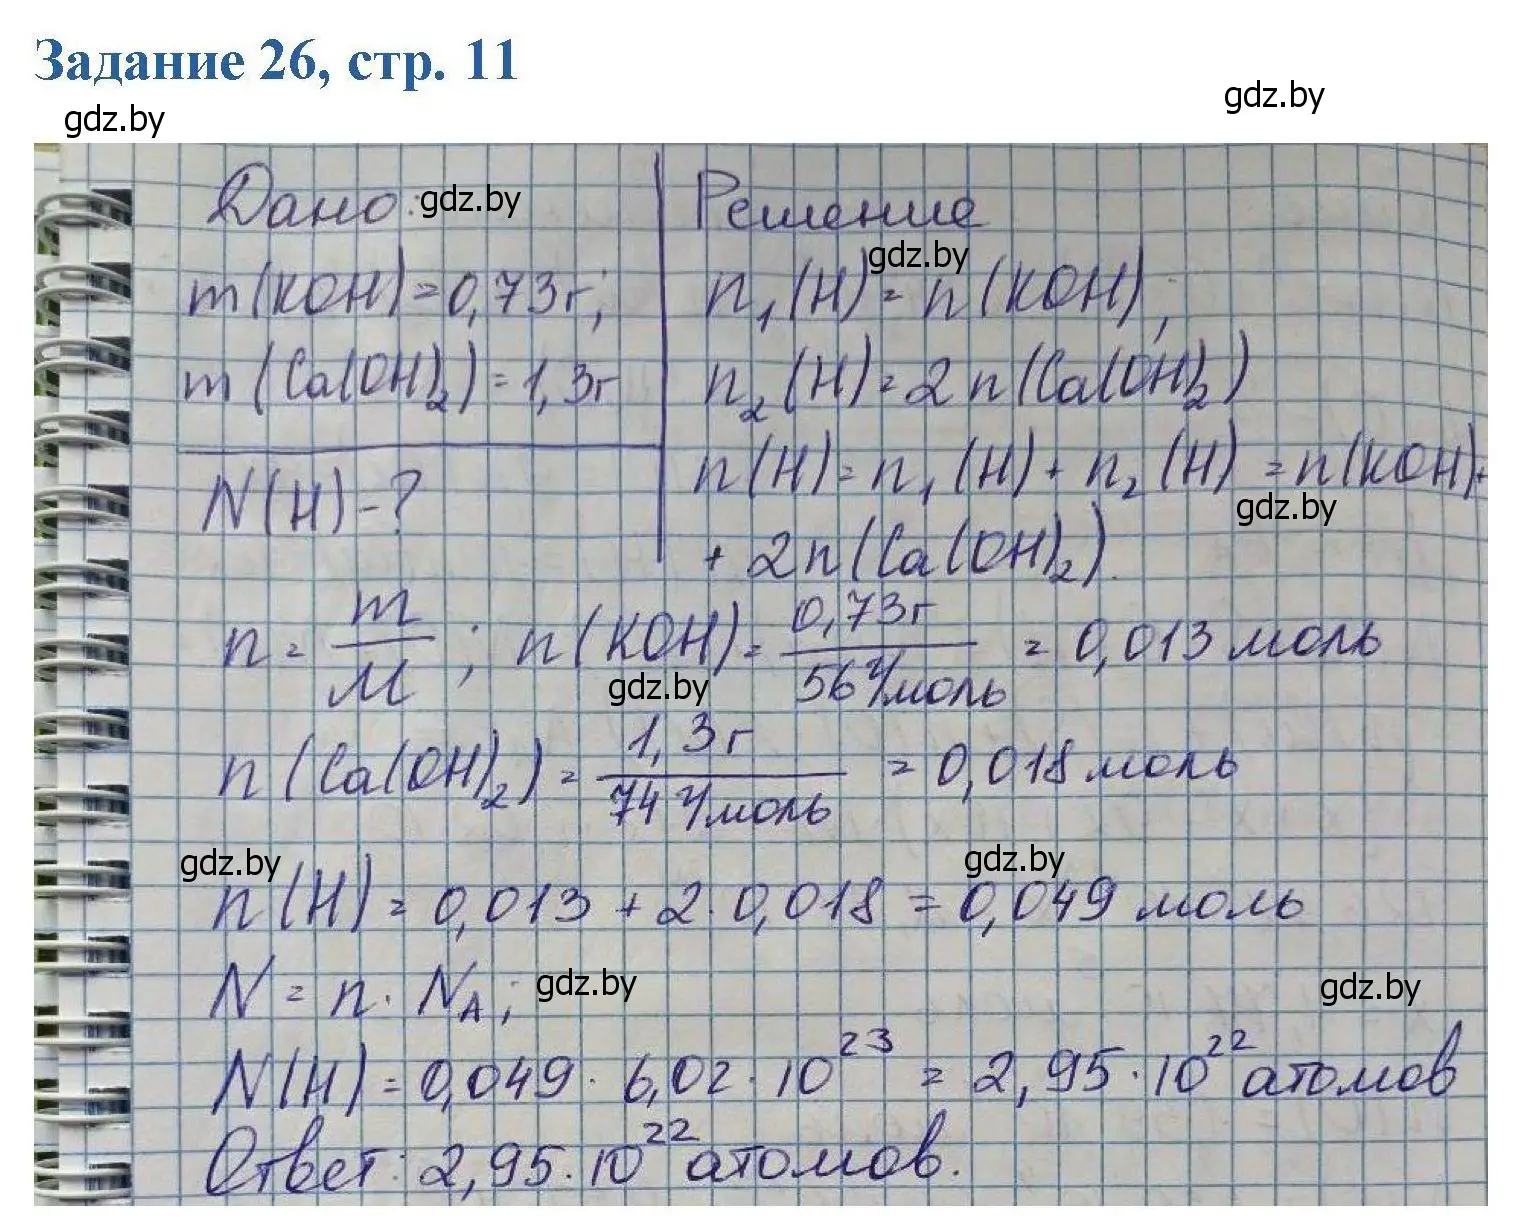 Задание 26, стр. 11
gdz.by
gdz.by
Дано: gdz.by
m(KOH)=0,73г;
m(Ca(OH)₂)=1,3г
N(H)-?
Решение
gdz.by
n₁(H)=n(KOH);
n₂(H)=2n(Ca(OH)₂)
n(H)=n₁(H)+n₂(H)=n(KOH)+
gdz.by
+2n(Ca(OH)₂).
n=m/M; n(KOH)=0,73г/56г/моль=0,013моль
gdz.by
n(Ca(OH)₂)=1,3г/74г/моль=0,018моль
gdz.by gdz.by
n(H)=0,013+2·0,018=0,049моль
N=n·N_A; gdz.by gdz.by
N(H)=0,049·6,02·10²³=2,95·10²²атомов
Ответ: 2,95·10²²атомов.